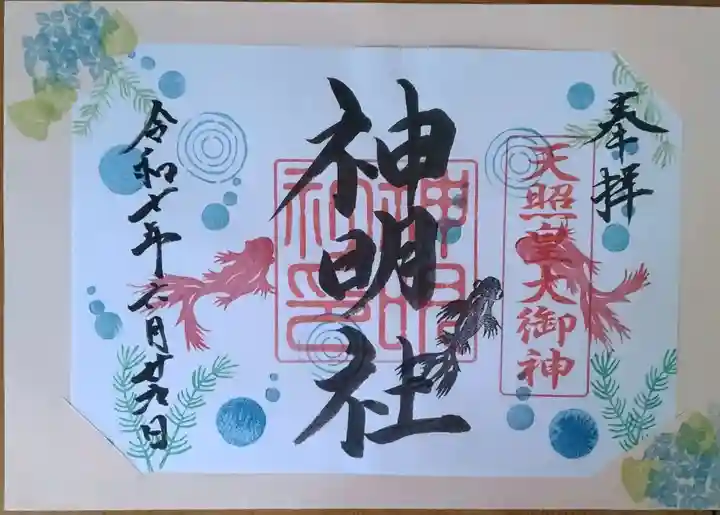 奉拝
天照皇大御神
神明社
神明社印
令和七年六月廿九日